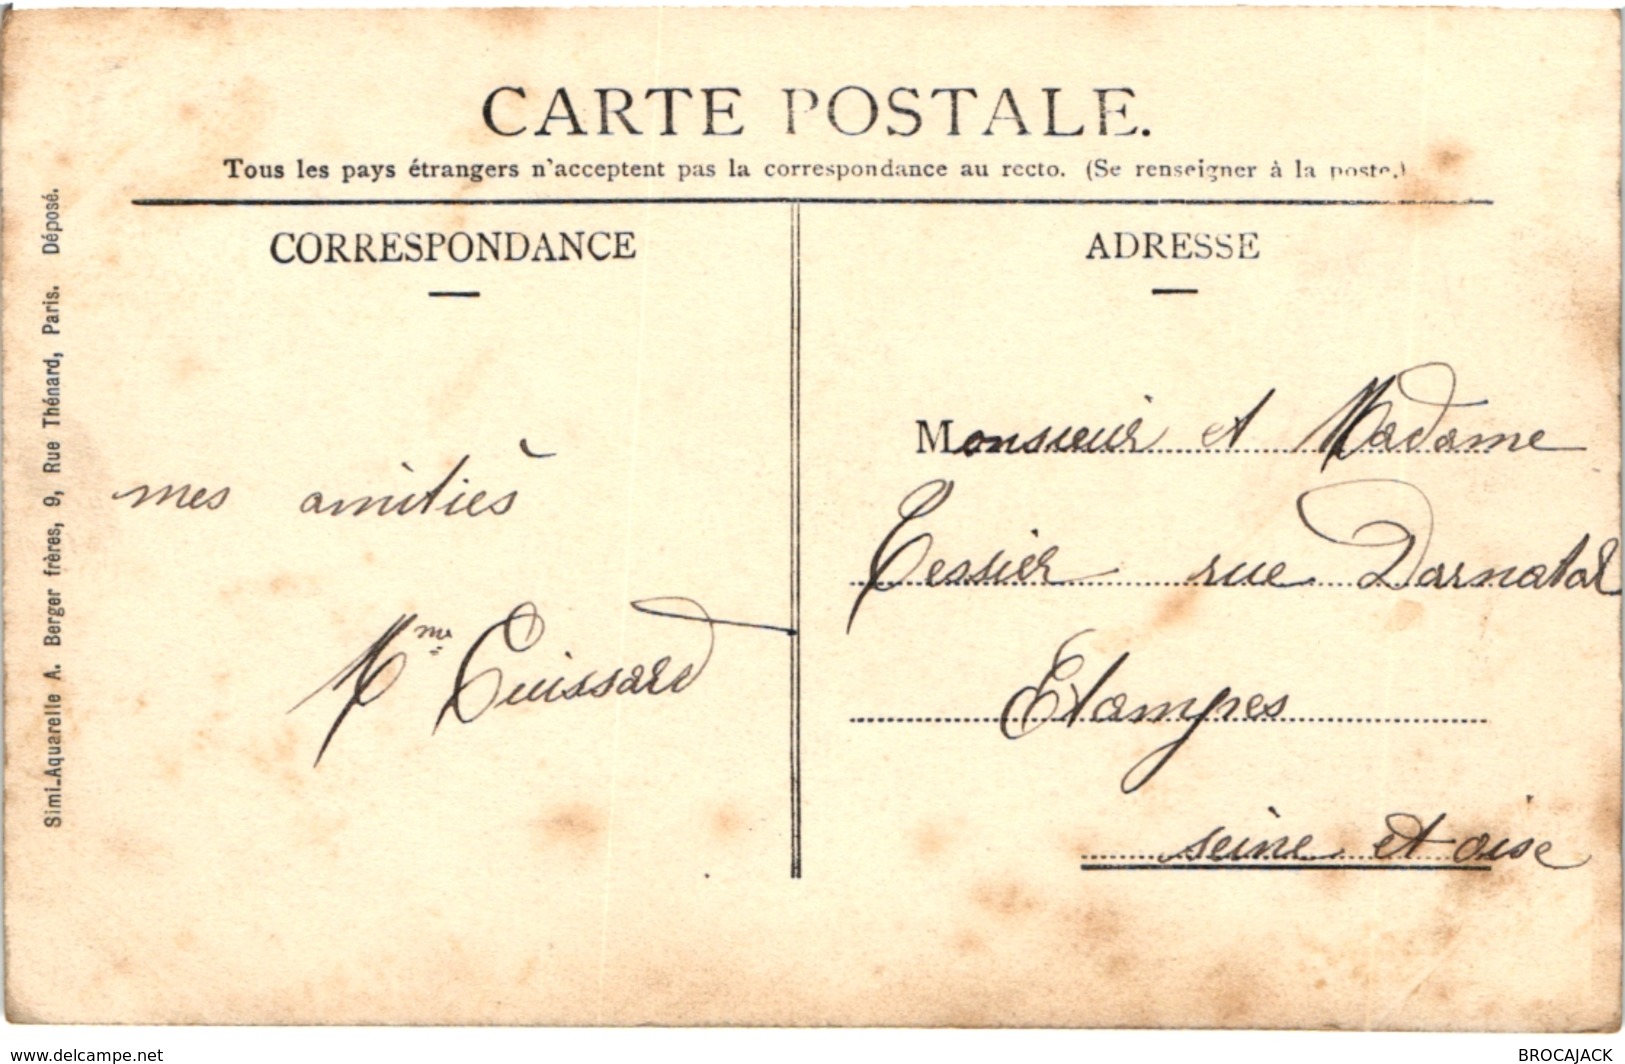 CARTE POSTALE.
Tous les pays étrangers n'acceptent pas la correspondance au recto. (Se renseigner à la poste.)
Simi-Aquarelle A. Berger frères, 9, Rue Thénard, Paris. Déposé.
CORRESPONDANCE
mes amitiès
Mme Cuissard
ADRESSE
Monsieur et Madame
Tessier rue Darnatal
Etampes
seine et oise
www.delcampe.net
BROCAJACK